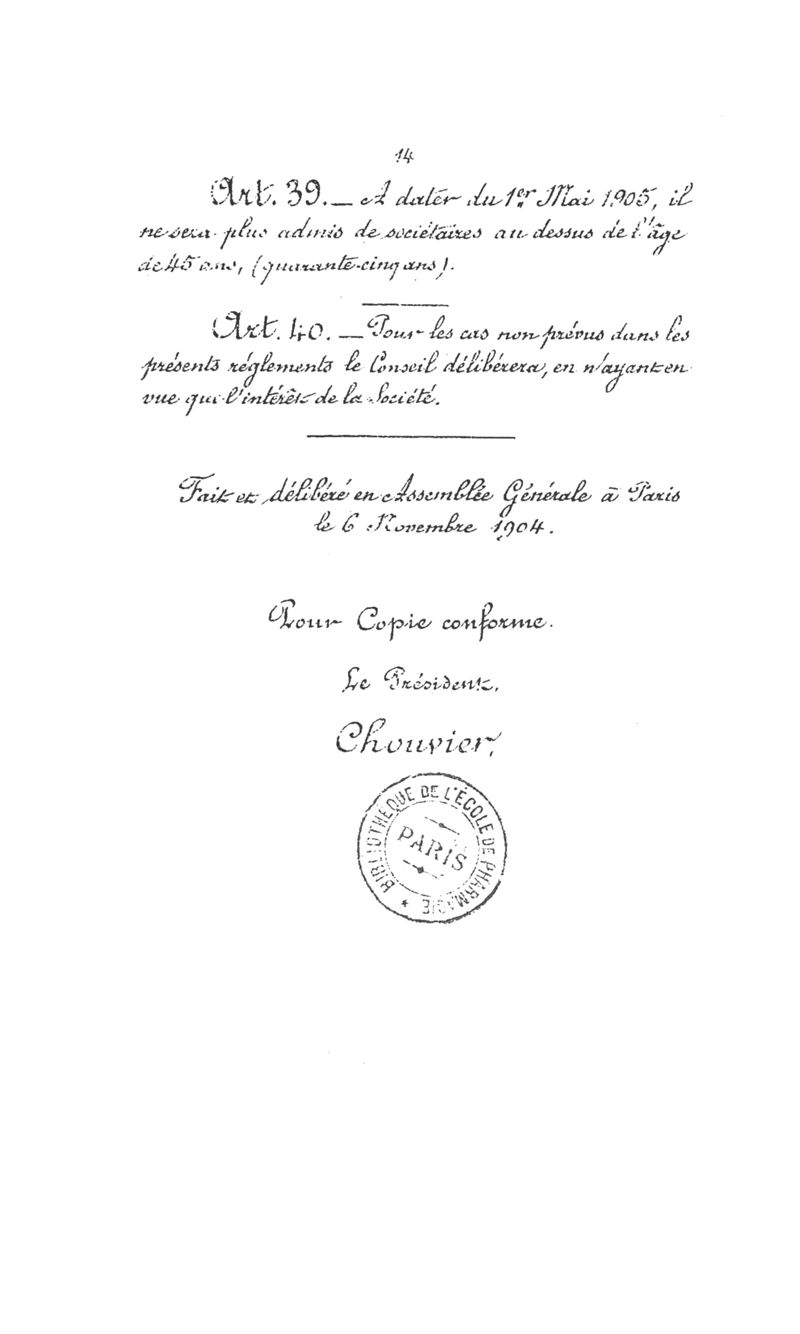 14
Art. 39. — A dater du 1er Mai 1905, il
ne sera plus admis de sociétaires au dessus de l'âge
de 45 ans, (quarante-cinq ans).
Art. 40. — Pour les cas non prévus dans les
présents réglements le Conseil délibérera, en n'ayant en
vue que l'intérêt de la Société.
Fait et délibéré en Assemblée Générale à Paris
le 6 Novembre 1904.
Pour Copie conforme.
Le Président,
Chouvier,
BIBLIOTHÈQUE DE L'ÉCOLE DE PHARMACIE *
PARIS